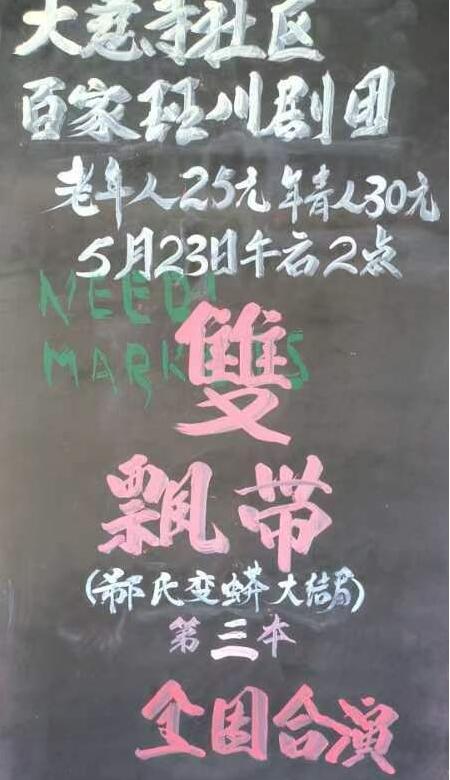 大慈寺社区
百家班川剧团
老年人25元年青人30元
5月23日午后2点
NEED!
MARKERS
雙
飘带
(郗氏变蟒大结局)
第三本
全国合演